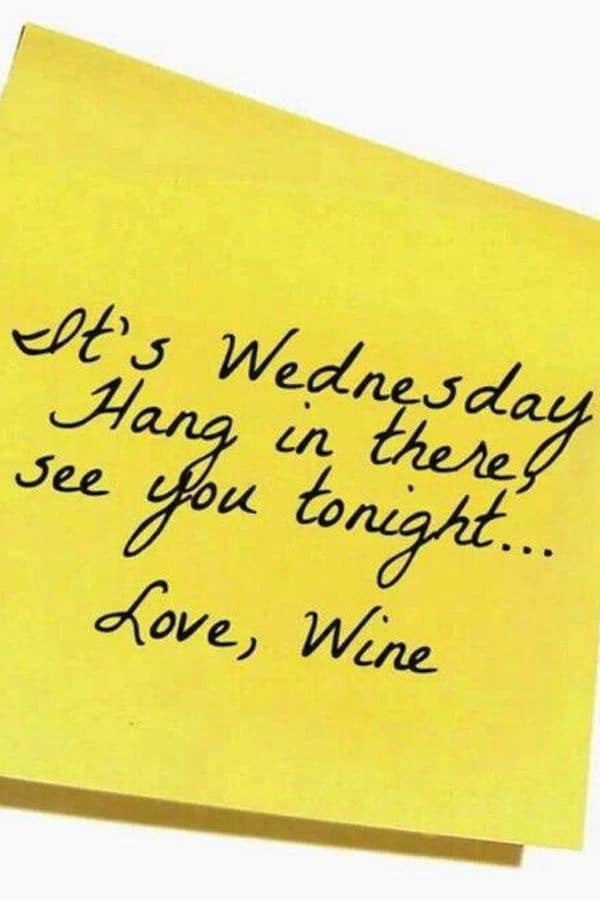 It's Wednesday
Hang in there,
see you tonight...
Love, Wine